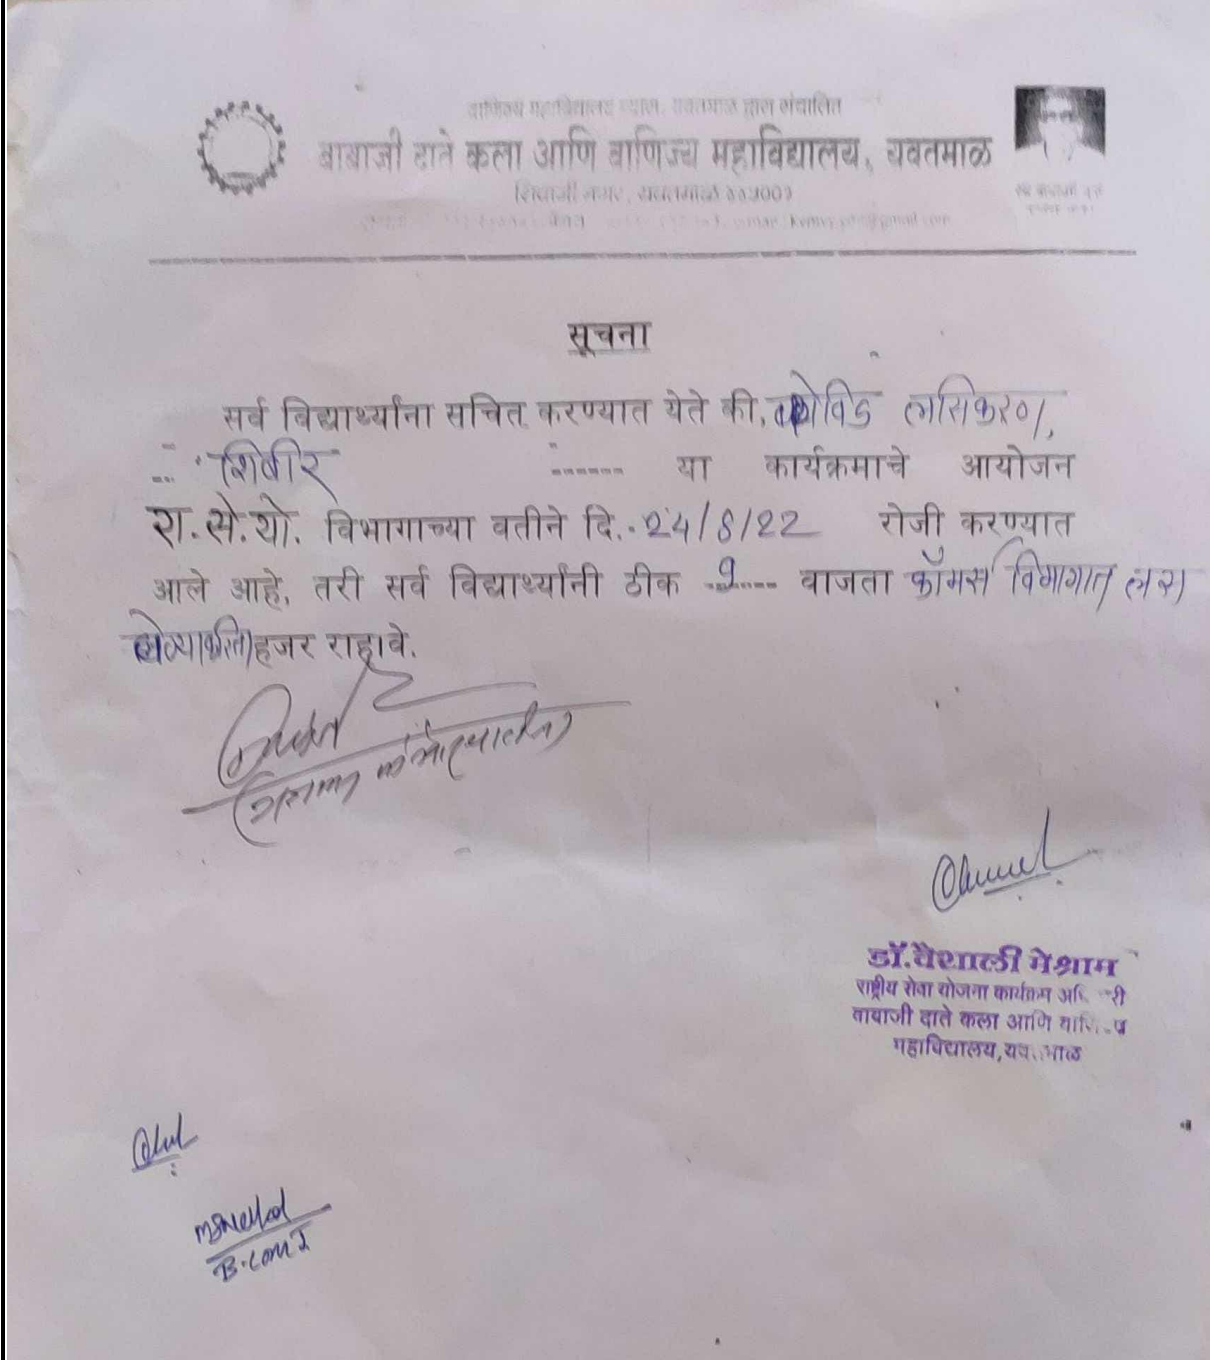 वाणिज्य महाविद्यालय यवतमाळ द्वारा संचालित
बाबाजी दाते कला आणि वाणिज्य महाविद्यालय, यवतमाळ
शिवाजी नगर, यवतमाळ
सूचना
सर्व विद्यार्थ्यांना सचित करण्यात येते की, कोविड लसिकरण,
शिबीर ------ या कार्यक्रमाचे आयोजन
रा.से.यो. विभागाच्या वतीने दि. 24/8/22 रोजी करण्यात
आले आहे, तरी सर्व विद्यार्थ्यांनी ठीक 9 वाजता कॉमर्स विभागात लस
घेण्याकरिता हजर राहावे.
डॉ.वैशाली मेश्राम
राष्ट्रीय सेवा योजना कार्यक्रम
बाबाजी दाते कला आणि
महाविद्यालय,
B.com I